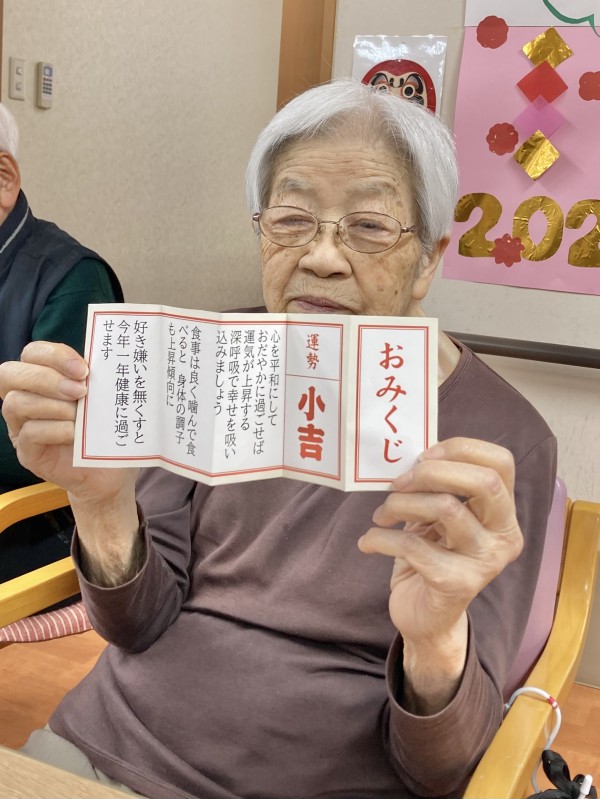 おみくじ
運勢
小吉
心を平和にして
おだやかに過ごせば
運気が上昇する
深呼吸で幸せを吸い
込みましょう
食事は良く噛んで食
べると 身体の調子
も上昇傾向に
好き嫌いを無くすと
今年一年健康に過ご
せます
202